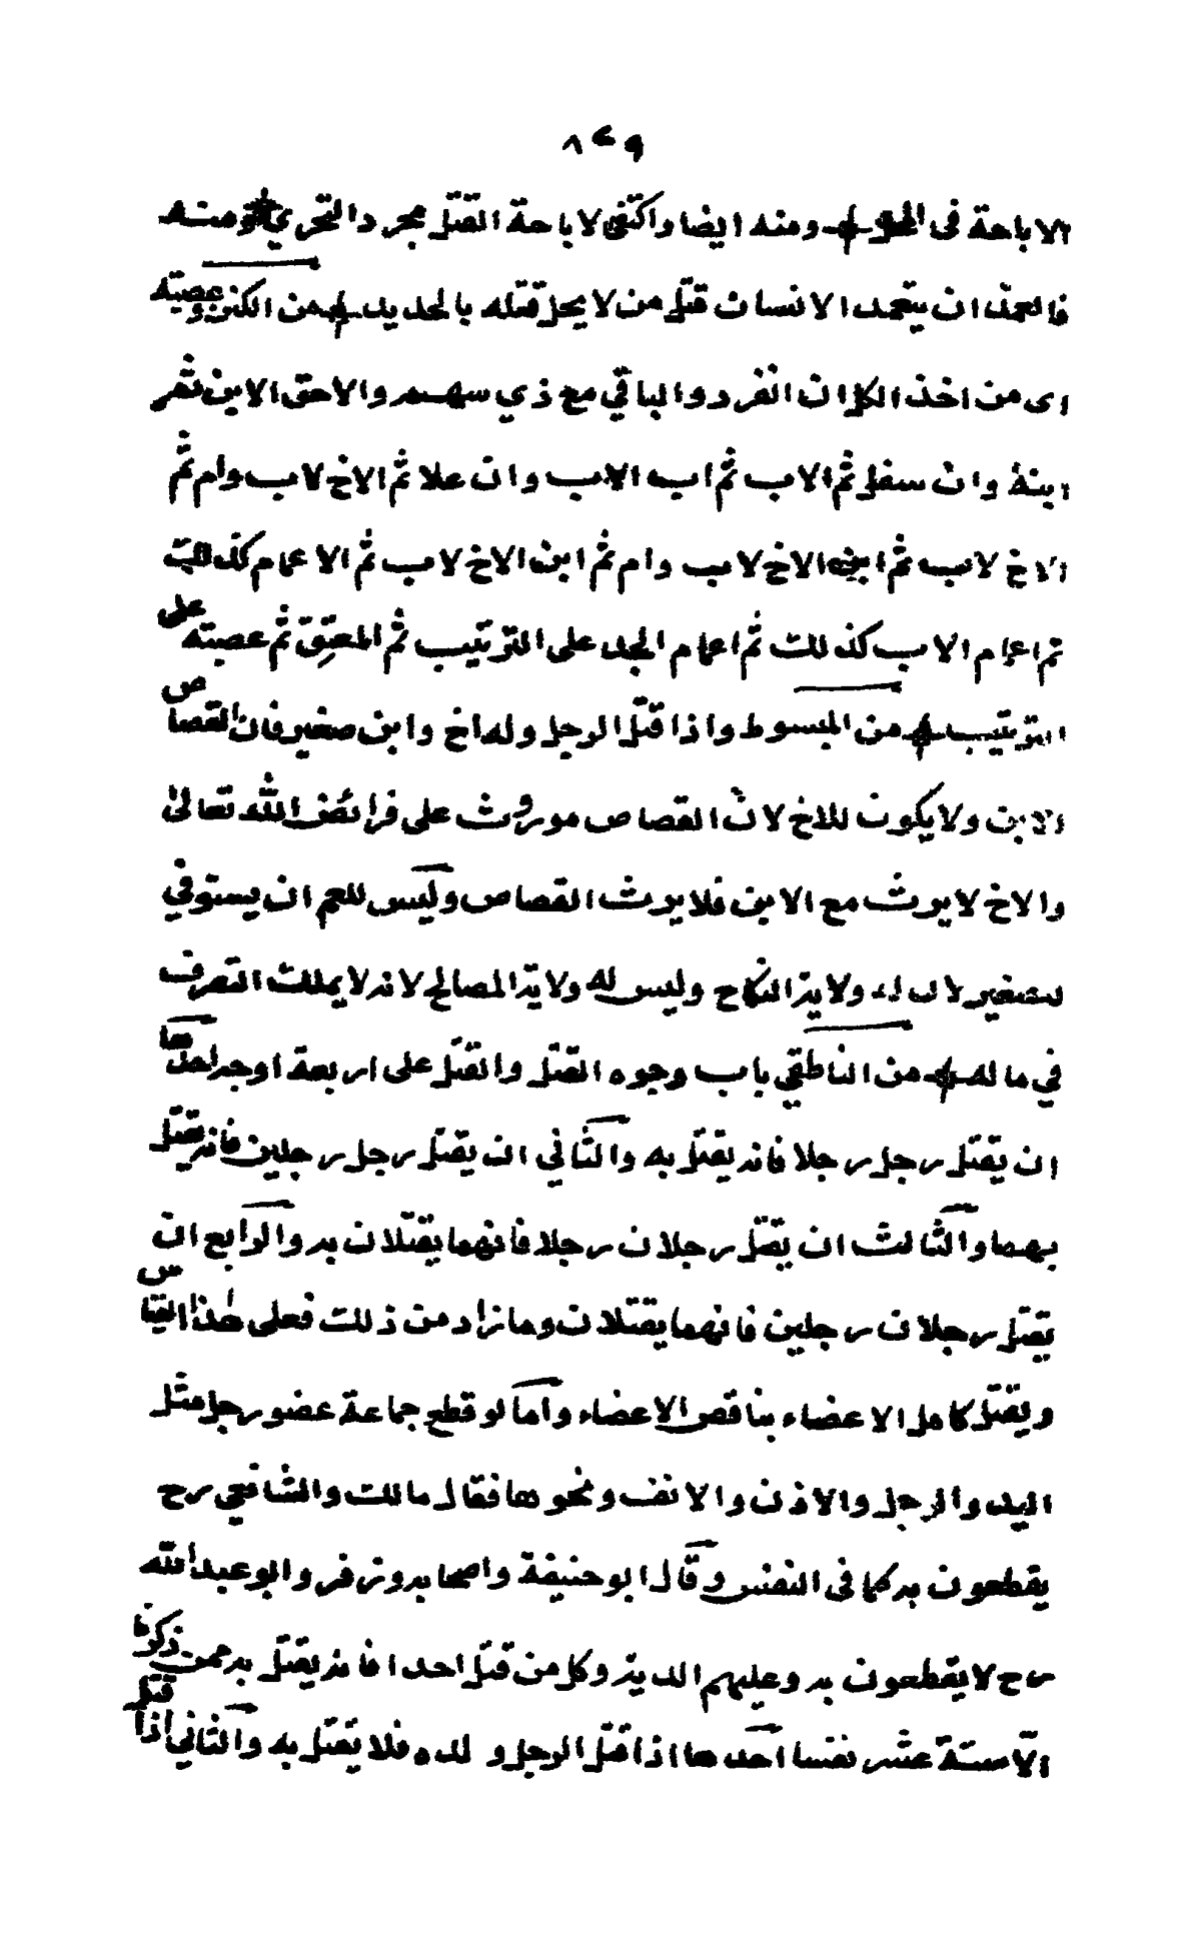 ٨٢٩
الاباحة فى المحل ومنه ايضا واكتفى لاباحة القتل بمجرد التحري ومنه
فالعمد ان يتعمد الانسان قتل من لا يحل قتله بالحديد من الكنز وعصبته
اى من اخذ الكل ان انفرد والباقي مع ذي سهم والاحق الابن ثم
ابنه وان سفل ثم الاب ثم اب الاب وان علا ثم الاخ لاب وام ثم
الاخ لاب ثم ابن الاخ لاب وام ثم ابن الاخ لاب ثم الاعمام كذلك
ثم اعمام الاب كذلك ثم اعمام الجد على الترتيب ثم المعتق ثم عصبته على
الترتيب من المبسوط واذا قتل الرجل وله اخ وابن صغير فان القصاص
الابن ولا يكون للاخ لان القصاص موروث على فرائض الله تعالى
والاخ لا يرث مع الابن فلا يرث القصاص وليس للعم ان يستوفي
للصغير لان له ولاية النكاح وليس له ولاية المصالح لانه لا يملك التصرف
في ماله من الناطقي باب وجوه القتل والقتل على اربعة اوجه احدها
ان يقتل رجل رجلا فانه يقتل به والثاني ان يقتل رجل رجلين فانه يقتل
بهما والثالث ان يقتل رجلان رجلا فانهما يقتلان به والرابع ان
يقتل رجلان رجلين فانهما يقتلان وما زاد من ذلك فعلى هذا القياس
ويقتل كامل الاعضاء بناقص الاعضاء واما لو قطع جماعة عضو رجل مثل
اليد والرجل والاذن والانف ونحوها فقال مالك والشافعي رح
يقطعون به كما فى النفس وقال ابو حنيفة واصحابه وزفر وابو عبد الله
رح لا يقطعون به وعليهم الدية وكل من قتل احدا فانه يقتل به ممن ذكرنا
الا ستة عشر نفسا احدها اذا قتل الرجل ولده فلا يقتل به والثاني اذا قتل